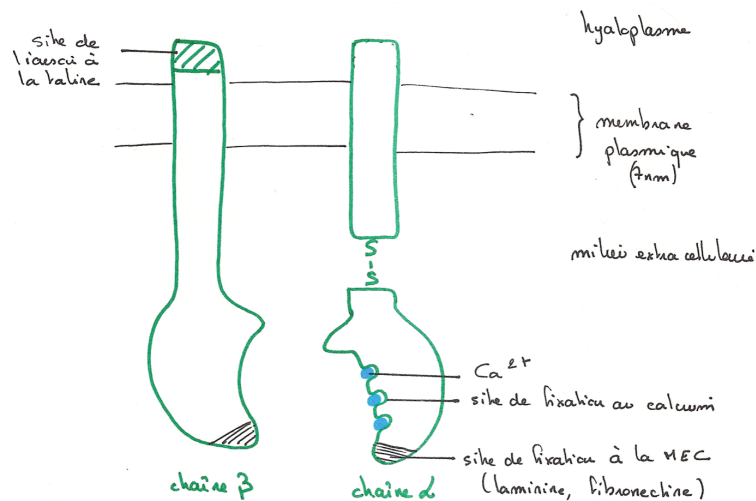 hyaloplasme
site de
liaison à
la taline
membrane
plasmique
(7nm)
milieu extracellulaire
S
S
Ca2+
site de fixation au calcium
site de fixation à la MEC
(laminine, fibronectine)
chaîne β
chaîne α